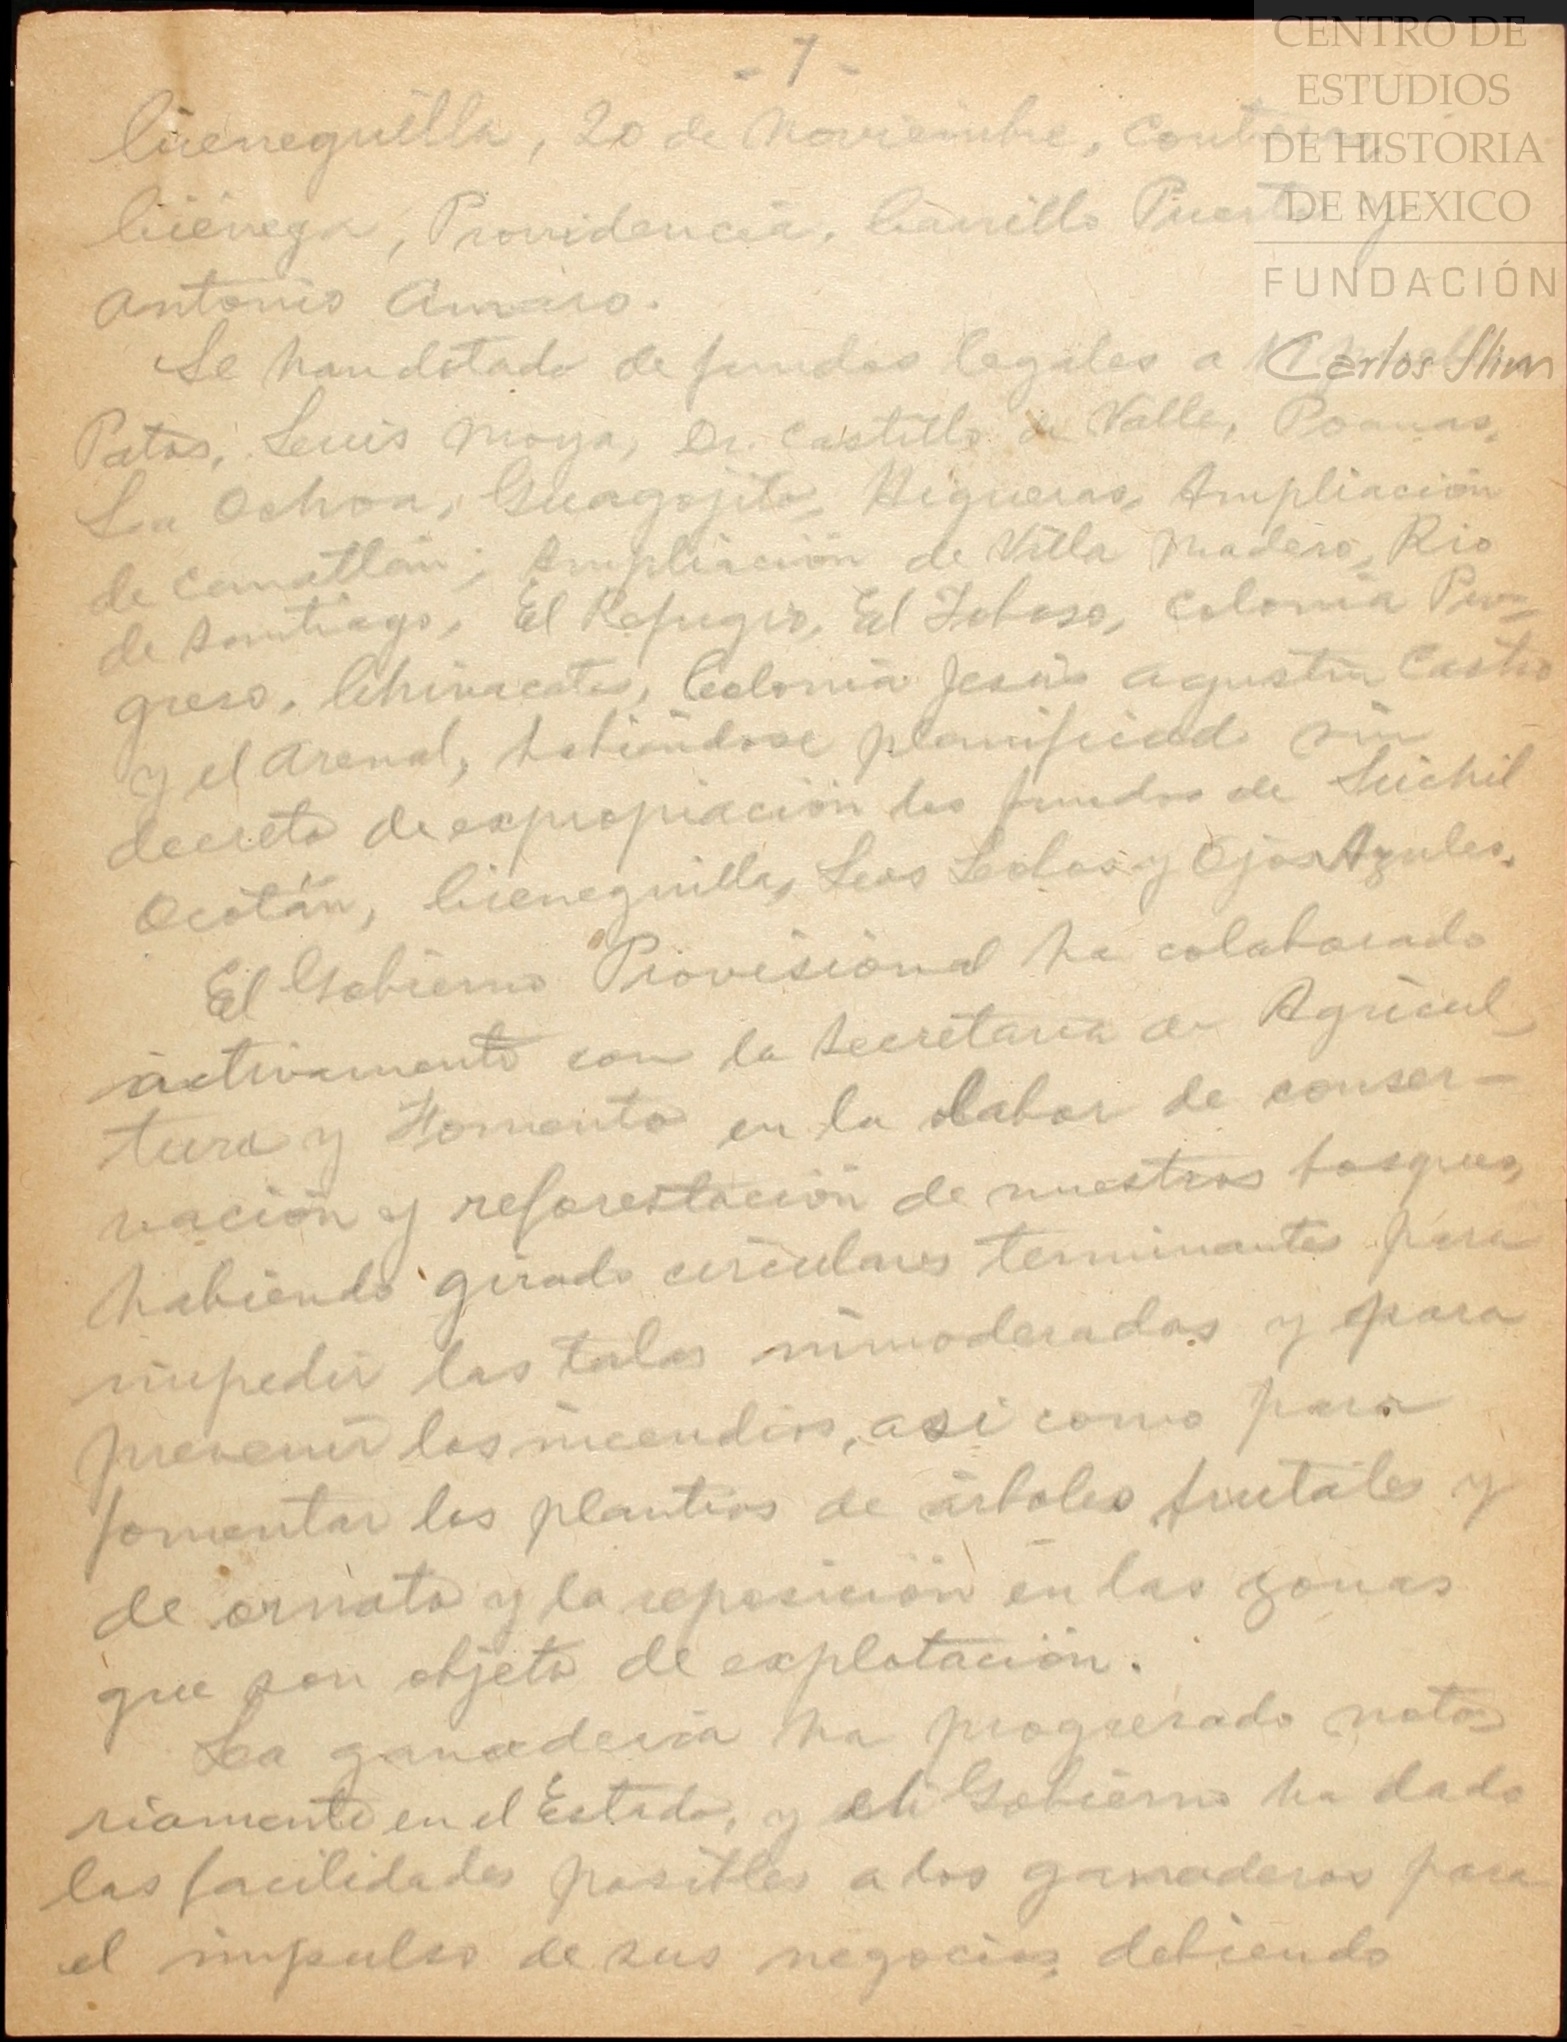 - 7 -
Cieneguilla, 20 de Noviembre,
Ciénega, Providencia, Carrillo Puerto y
Antonio Amaro.
Se han dotado de fundos legales a
Patos, Luis Moya, Dr. Castillo de Valle, Poanas,
La Ochoa, Guagojito, Higueras, Ampliación
de Canatlán, Ampliación de Villa Madero, Rio
de Santiago, El Refugio, El Toboso, Colonia Pro-
greso, Chinacates, Colonia Jesús Agustín Castro
y el Arenal, habiéndose planificado sin
decreto de expropiación los fundos de Suchil
Ocotán, Cieneguilla, Los Lolos y Ojos Azules.
El Gobierno Provisional ha colaborado
activamente con la Secretaria de Agricul-
tura y Fomento en la labor de conser-
vación y reforestación de nuestros bosques,
habiendo girado circulares terminantes para
impedir las talas inmoderadas y para
prevenir los incendios, asi como para
fomentar los plantios de árboles frutales y
de ornato y la reposición en las zonas
que son objeto de explotación.
La ganaderia ha progresado noto-
riamente en el Estado, y el Gobierno ha dado
las facilidades posibles a los ganaderos para
el impulso de sus negocios, debiendo
CENTRO DE
ESTUDIOS
DE HISTORIA
DE MEXICO
FUNDACIÓN
Carlos Slim